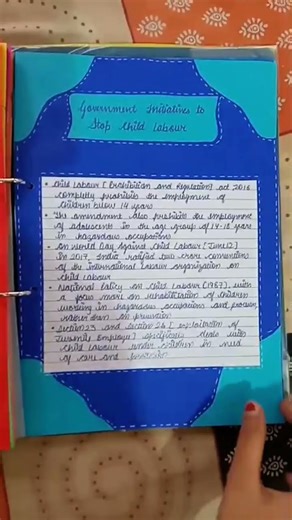 Government Initiatives to
Stop Child Labour
• Child Labour [Prohibition and Regulation] act 2016
completly prohibits the employment of
children below 14 years
• The amendment also prohibits the employment
of adolescents in the age group of 14-18 years
in hazardous occupations
• On World Day Against Child Labour (June12)
In 2017, India ratified two core conventions
of the international Labour organization on
child labour
• National Policy on Child Labour (1987), with
a focus more on rehabilitation of children
working in hazardous occupations and process
rather than on prevention
• Section 23 and section 26 [exploitation of
Juvenile Employee] deals with
child labour under children in need
of care and